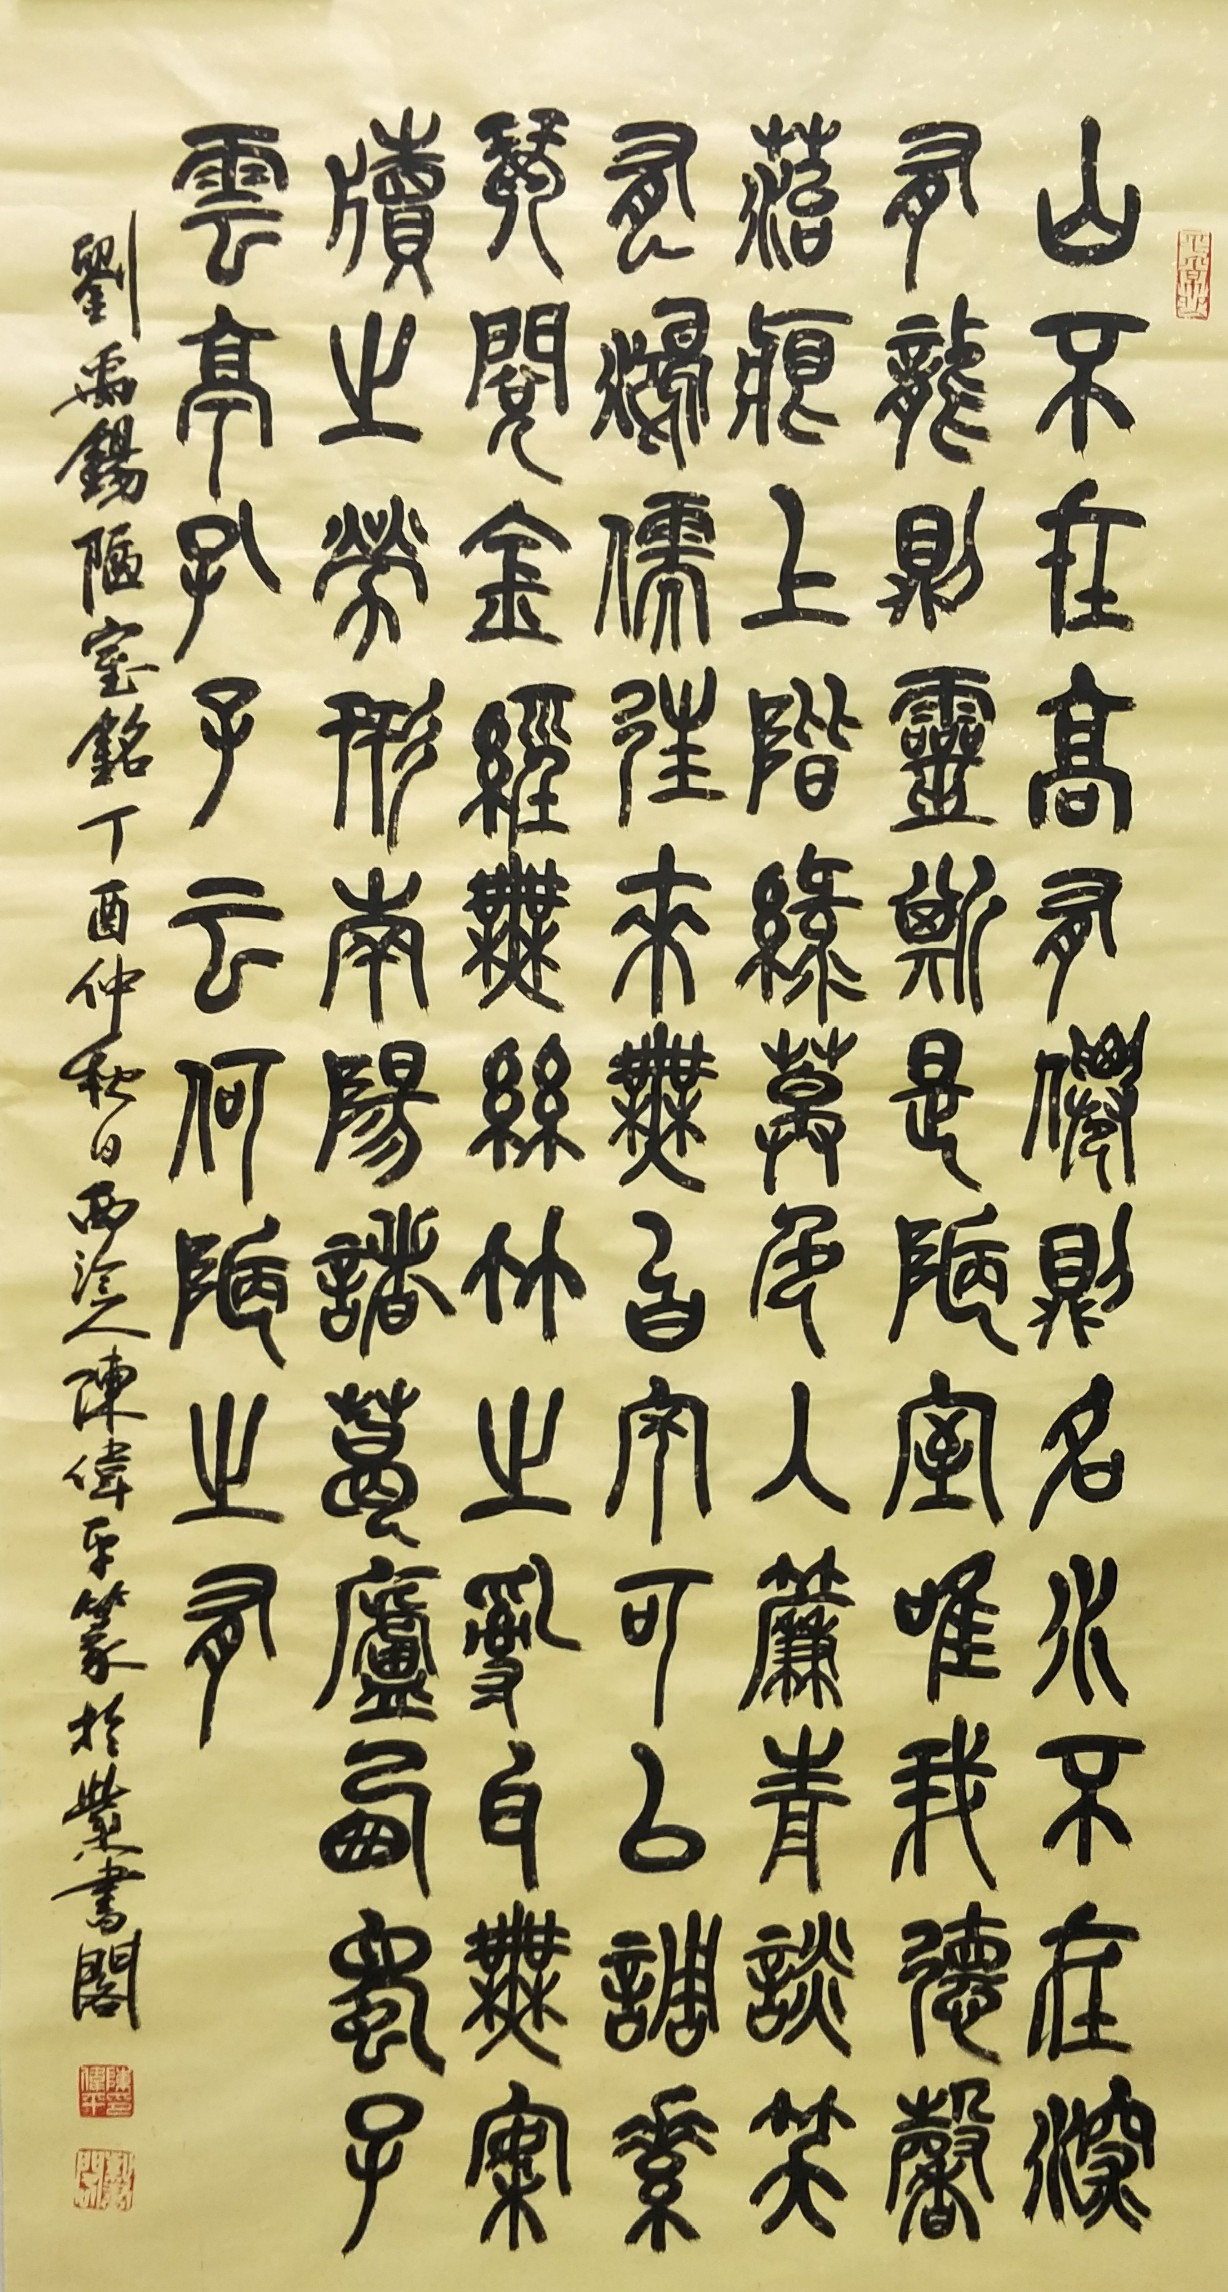 山不在高有僊則名水不在深
有龍則靈斯是陋室唯我德馨
菭痕上階綠草色入簾青談笑
有鴻儒往來無白丁可以調素
琴閱金經無絲竹之亂耳無案
牘之勞形南陽諸葛廬西蜀子
雲亭孔子云何陋之有
劉禹錫陋室銘丁酉仲秋日西泠人陳偉平篆於紫書閣
陳偉平印